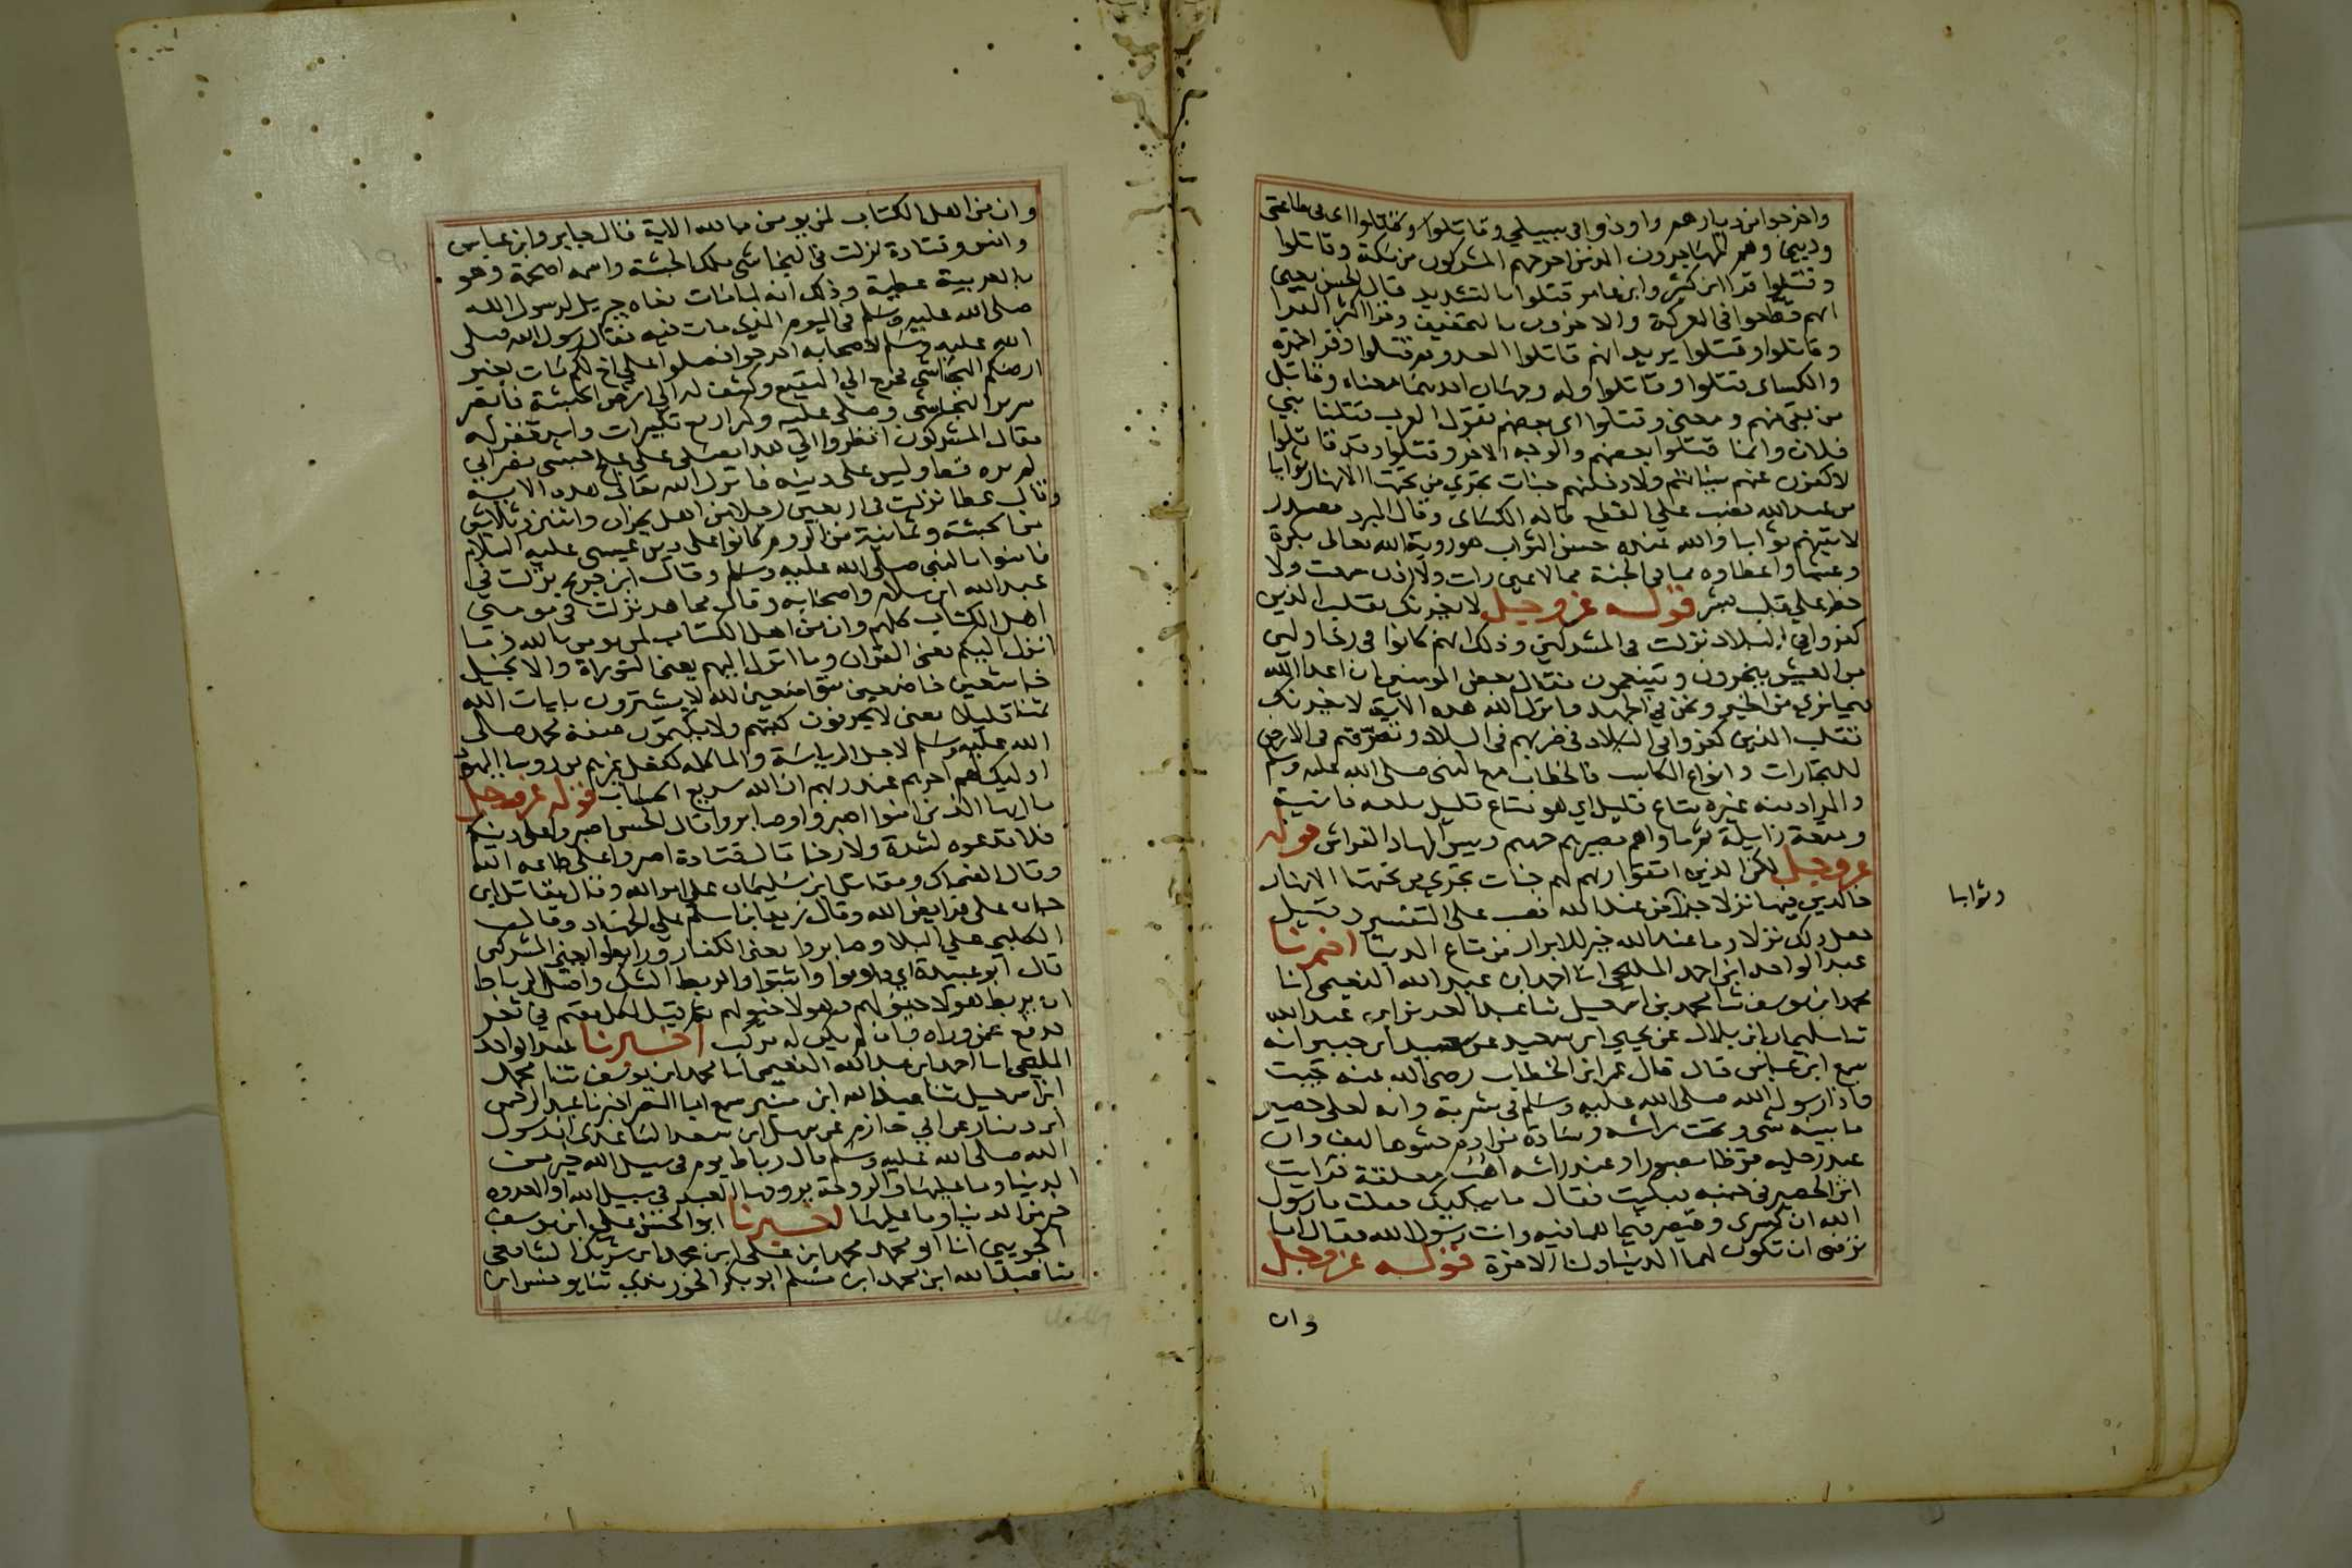 واخرجوا من ديارهم واوذوا في سبيلي وقاتلوا وقتلوا اي في طاعتي
وديني وهم المهاجرون الذين اخرجهم المشركون من مكة وقاتلوا
وقتلوا قرا ابن كثير وابن عامر قتلوا بالتشديد قال الحسن يعني
انهم قطعوا في المعركة والاخرون بالتخفيف وقرا اكثر القرا
وقاتلوا وقتلوا يريد انهم قاتلوا العدو ثم قتلوا وقرا حمزة
والكساى قتلوا وقاتلوا وله وجهان احدهما معناه وقاتل
من بقي منهم ومعنى وقتلوا اى بعضهم تقول العرب قتلنا بني
فلان وانما قتلوا بعضهم والوجه الاخر وقتلوا وقد قاتلوا
لاكفرن عنهم سيئاتهم ولادخلنهم جنات تجري من تحتها الانهار ثوابا
من عند الله نصب على القطع قاله الكساى وقال المبرد مصدر
لاثيبنهم ثوابا والله عنده حسن الثواب
خطر على قلب بشر قوله عز وجل لا يغرنك تقلب الذين
كفروا في البلاد نزلت في المشركين وذلك انهم كانوا في رخا ولين
من العيش يتجرون ويتنعمون فقال بعض المومنين ان اعدا الله
فيما نري من الخير ونحن في الجهد فانزل الله هذه الاية لا يغرنك
تقلب الذين كفروا في البلاد في ضربهم في البلاد وتصرفهم في الارض
للتجارات وانواع المكاسب فالخطاب مع النبي صلى الله عليه وسلم
والمراد منه غيره متاع قليل اي هو متاع قليل بلغه فانية
ومتعة زايلة ثم ماواهم مصيرهم جهنم وبيس المهاد الفراش قوله
عز وجل لكن الذين اتقوا ربهم لهم جنات تجري من تحتها الانهار
خالدين فيها نزلا جزآ من عند الله نصب على التفسير وقيل
جعل ذلك نزلا وما عند الله خير للابرار من متاع الدنيا اخبرنا
عبد الواحد ابن احمد المليحي انا احمد ابن عبد الله النعيمي انا
محمد ابن يوسف ثنا محمد بن اسمعيل ثنا عبد العزيز ابن عبد الله
ثنا سليمان ابن بلال عن يحيي ابن سعيد عن عبيد ابن جبير انه
سمع ابن عباس قال قال عمر ابن الخطاب رضي الله عنه جيت
فاذا رسول الله صلى الله عليه وسلم في مشربة وانه لعلى حصير
ما بينه شي وتحت راسه وسادة من ادم حشوها ليف وان
عند رجليه قرظا مصبورا وعند راسه اهب معلقة فرايت
اثر الحصير في جنبه فبكيت فقال ما يبكيك فقلت يا رسول
الله ان كسرى وقيصر فيما هما فيه وانت رسول الله فقال اما
ترضى ان تكون لهما الدنيا ولنا الاخرة قوله عز وجل
وان
وثوابا
وان من اهل الكتاب لمن يومن بالله الاية قال جابر وابن عباس
وانس وقتادة نزلت في النجاشي ملك الحبشة واسمه اصحمة وهو
بالعربية عطية وذلك انه لما مات نعاه جبريل لرسول الله
صلى الله عليه وسلم في اليوم الذي مات فيه فقال رسول الله صلى
الله عليه وسلم لاصحابه اخرجوا فصلوا على اخ لكم مات بغير
ارضكم النجاشي فخرج الى البقيع وكشف له الى ارض الحبشة فابصر
سرير النجاشي وصلى عليه وكبر اربع تكبيرات واستغفر له
فقال المشركون انظروا الى هذا يصلى على علج حبشي نصراني
لم يره قط وليس على دينه فانزل الله تعالى هذه الاية
وقال عطا نزلت في اربعين رجلا من اهل نجران واثنين وثلاثين
من الحبشة وثمانية من الروم كانوا على دين عيسى عليه السلام
فامنوا بالنبي صلى الله عليه وسلم وقال ابن جريج نزلت في
عبد الله ابن سلام واصحابه وقال مجاهد نزلت في مومني
اهل الكتاب كلهم وان من اهل الكتاب لمن يومن بالله وما
انزل اليكم يعني القران وما انزل اليهم يعني التوراة والانجيل
خاشعين خاضعين متواضعين لله لا يشترون بايات الله
ثمنا قليلا يعني لا يحرفون كتبهم ولا يكتمون صفة محمد صلى
الله عليه وسلم لاجل الرياسة والماكله كفعل غيرهم من روسا اليهود
اوليك لهم اجرهم عند ربهم ان الله سريع الحساب قوله عز وجل
يا ايها الذين امنوا اصبروا وصابروا قال الحسن اصبروا على دينكم
فلا تدعوه لشدة ولا رخا قال قتادة اصبروا على طاعة الله
وقال الضحاك ومقاتل ابن سليمان على امر الله وقال مقاتل ابن
حيان على فرايض الله وقال زيد ابن اسلم على الجهاد وقال
الكلبي على البلا وصابروا يعني الكفار ورابطوا يعني المشركين
قال ابو عبيدة اي داوموا واثبتوا والربط الشد واصل الرباط
ان يربط هولا خيولهم وهولا خيولهم ثم قيل لكل مقيم في ثغر
يدفع عمن وراه وان لم يكن له مركب اخبرنا عبد الواحد
المليحي انا احمد ابن عبد الله النعيمي انا محمد ابن يوسف ثنا محمد
ابن اسمعيل ثنا عبد الله ابن منير سمع ابا النضر اخبرنا عبد الرحمن
ابن دينار عن ابي حازم عن سهل ابن سعد الساعدى ان رسول
الله صلى الله عليه وسلم قال رباط يوم في سبيل الله خير من
الدنيا وما عليها والروحة يروحها العبد في سبيل الله او الغدوه
خير من الدنيا وما عليها اخبرنا ابو الحسن علي ابن يوسف
الجويني انا ابو محمد محمد ابن علي ابن محمد ابن شريك الشافعي
ثنا عبد الله ابن محمد ابن مسلم ابو بكر الجوربذي ثنا يونس ابن